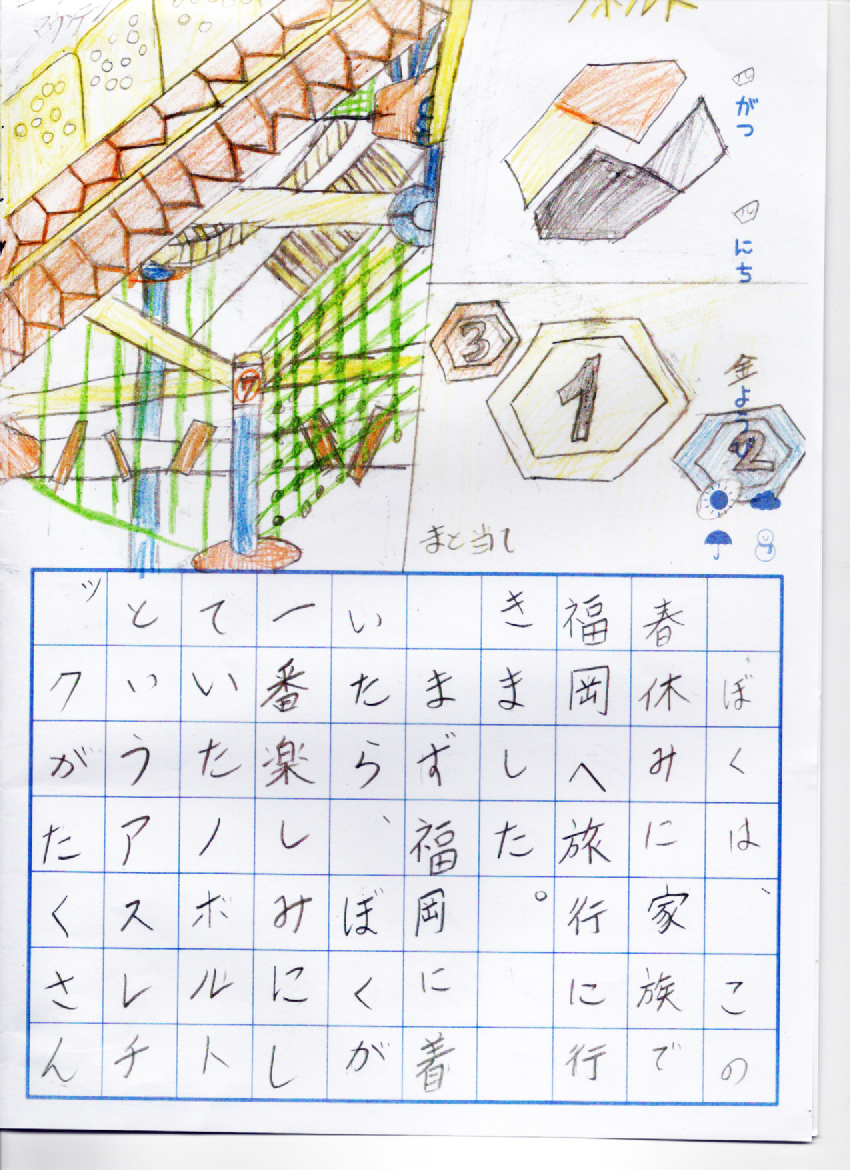 がつ
にち
金ようび
3
1
2
まと当て
7
ぼくは、この
春休みに家族で
福岡へ旅行に行
きました。
まず福岡に着
いたら、ぼくが
一番楽しみにし
ていたノボルト
というアスレチ
ックがたくさん